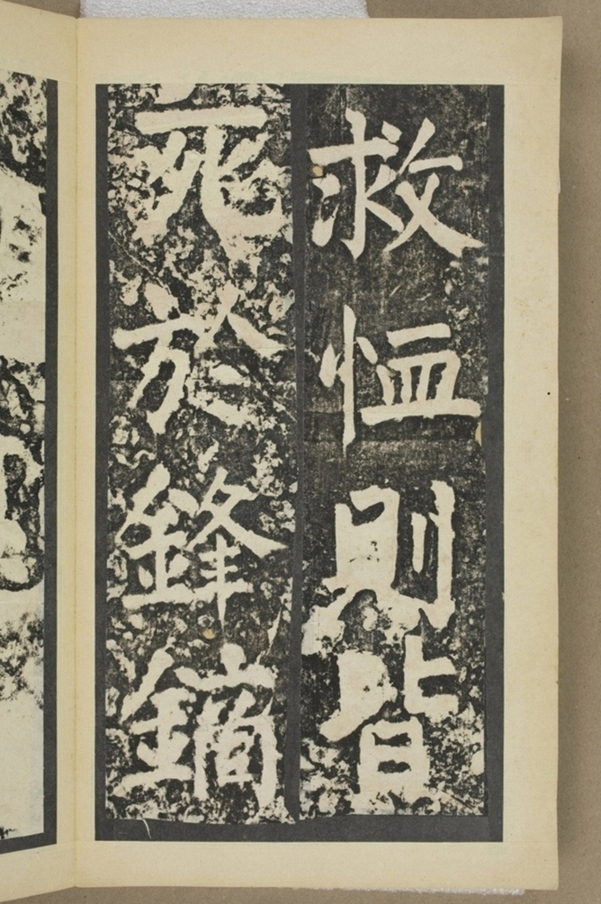 救恤則皆
死於鋒鏑